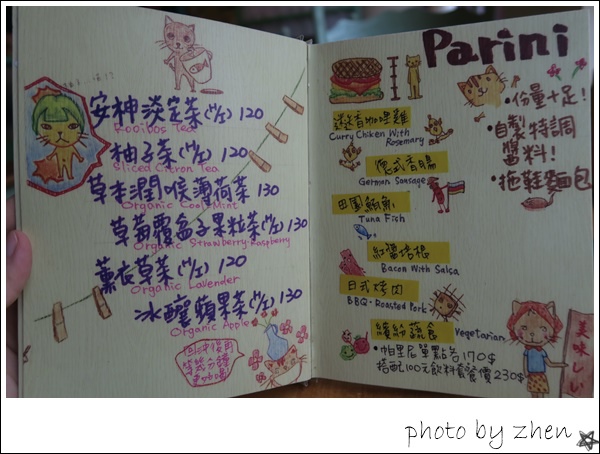 安神淡定茶(H/I) 120
Rooibos Tea
柚子茶(H/I) 120
Sliced Citron Tea
草本潤喉薄荷茶 130
Organic Cool Mint
草莓覆盆子果粒茶(H/I) 130
Organic Strawberry·Raspberry
薰衣草茶(H/I) 120
Organic Lavender
冰釀蘋果茶(H/I) 130
Organic Apple
Parini
迷迭香咖哩雞
Curry Chiken With
Rosemary
德式香腸
German Sausage
田園鮪魚
Tuna Fish
紅醬培根
Bacon With Salsa
日式烤肉
BBQ·Roasted Pork
繽紛蔬食 Vegetarian
•帕里尼單點各170$
搭配100元飲料套餐價230$
•份量十足!
•自製特調
醬料!
•拖鞋麵包
美味しい
photo by zhen